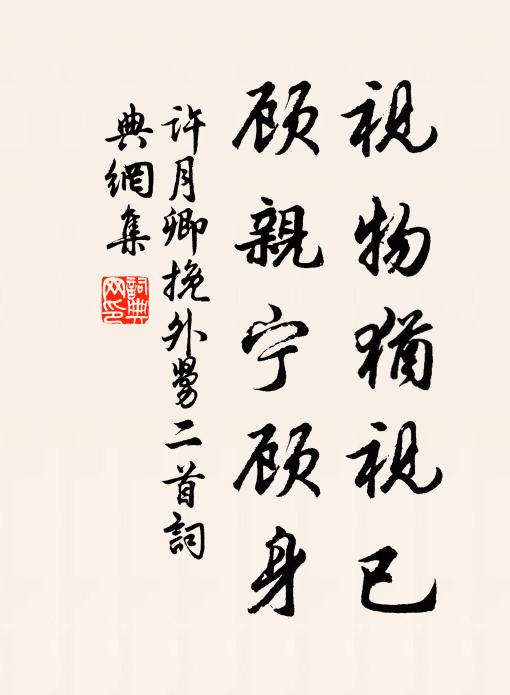 视物犹视已
顾親宁顾身
许月卿挽外舅二首詞
典網集
詞典网印